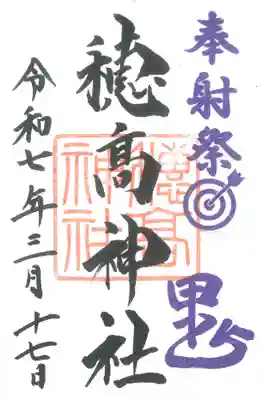 奉射祭
穂高神社
穂高神社
令和七年三月十七日